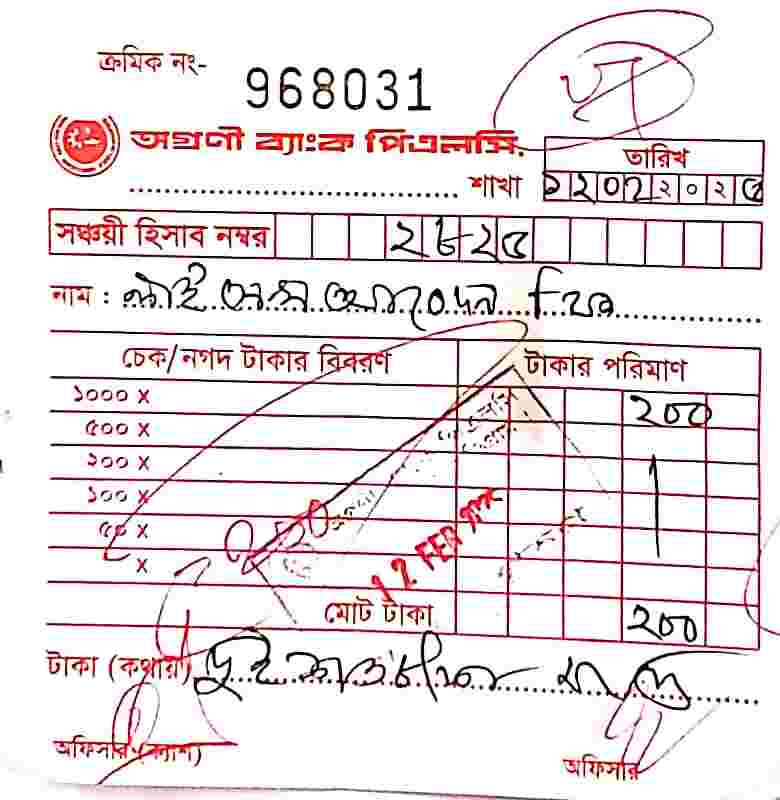 ক্রমিক নং- 968031
অগ্রণী ব্যাংক পিএলসি.
.................................... শাখা
তারিখ
১২০২২০২৫
সঞ্চয়ী হিসাব নম্বর ২৮২৫
নাম :
চেক/নগদ টাকার বিবরণ টাকার পরিমাণ
১০০০ x ২০০
৫০০ x
২০০ x
১০০ x
৫০ x
x
12 FEB
মোট টাকা ২০০
টাকা (কথায়) দুই শত টাকা মাত্র
অফিসার (ক্যাশ) অফিসার